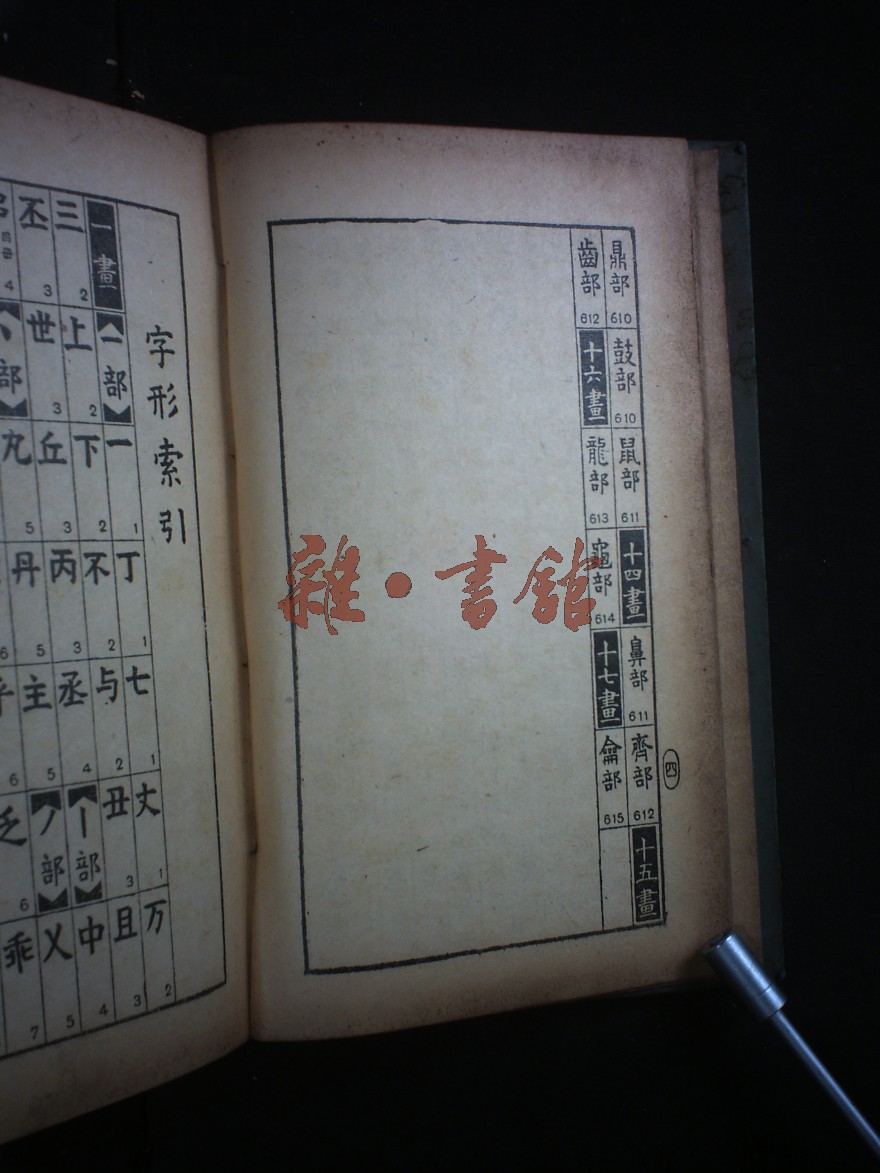 鼎部 610
鼓部 610
鼠部 611
十四畫
鼻部 611
齊部 612
十五畫
齒部 612
十六畫
龍部 613
龜部 614
十七畫
龠部 615
四
雜·書館
字形索引
一畫
【一部】
一 1
丁 1
七 1
丈 1
万 2
三 2
上 2
下 2
不 2
与 2
丑 3
且 3
丕 3
世 3
丘 3
丙 3
丞 4
【丨部】
中 4
4
【丶部】
丸 5
丹 5
主 5
【丿部】
乂 5
6
乎 6
乏 6
乖 7